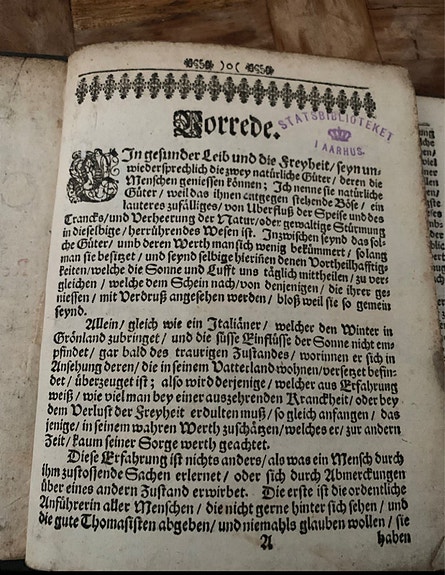 )o(
Vorrede.
STATSBIBLIOTEKET
I AARHUS.
EIn gesunder Leib und die Freyheit / seyn un-
wiedersprechlich die zwey natürliche Güter / deren die
Menschen geniessen können; Ich nenne sie natürliche
Güter / weil das ihnen entgegen stehende Böse / ein
lauteres zufälliges / von Uberfluß der Speise und des
Trancks / und Verheerung der Natur / oder gewaltige Stürmung
in dieselbige / herrührendes Wesen ist. Inzwischen seynd das sol-
che Güter / umb deren Werth man sich wenig bekümmert / solang
man sie besitzet / und seynd selbige hierinen denen Vortheilhafftig-
keiten / welche die Sonne und Lufft uns täglich mittheilen / zu ver-
gleichen / welche dem Schein nach / von denjenigen / die ihrer ge-
niessen / mit Verdruß angesehen werden / bloß weil sie so gemein
seynd.
Allein / gleich wie ein Italiäner / welcher den Winter in
Grönland zubringet / und die süsse Einflüsse der Sonne nicht em-
pfindet / gar bald des traurigen Zustandes / worinnen er sich in
Ansehung deren / die in seinem Vatterland wohnen / versetzet befin-
det / überzeuget ist; also wird derjenige / welcher aus Erfahrung
weiß / wie viel man bey einer auszehrenden Kranckheit / oder bey
dem Verlust der Freyheit erdulten muß / so gleich anfangen / das
jenige / in seinem wahren Werth zuschätzen / welches er / zur andern
Zeit / kaum seiner Sorge werth geachtet.
Diese Erfahrung ist nichts anders / als was ein Mensch durch
ihm zustossende Sachen erlernet / oder sich durch Abmerckungen
über eines andern Zustand erwirbet. Die erste ist die ordentliche
Anführerin aller Menschen / die nicht gerne hinter sich sehen / und
die gute Thomasisten abgeben / und niemahls glauben wollen / sie
A haben